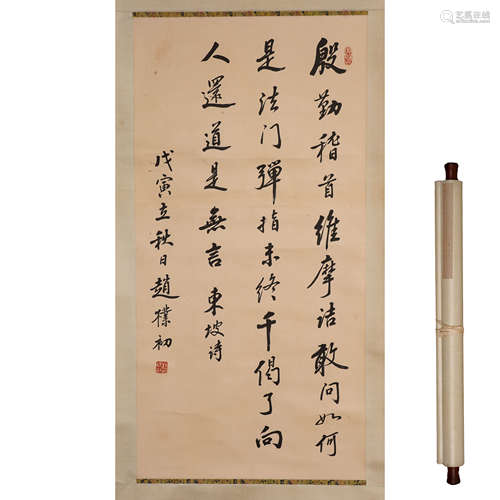 殷勤稽首維摩诘敢问如何
是法门弹指未終千偈了向
人還道是無言 東坡诗
戊寅立秋日趙樸初